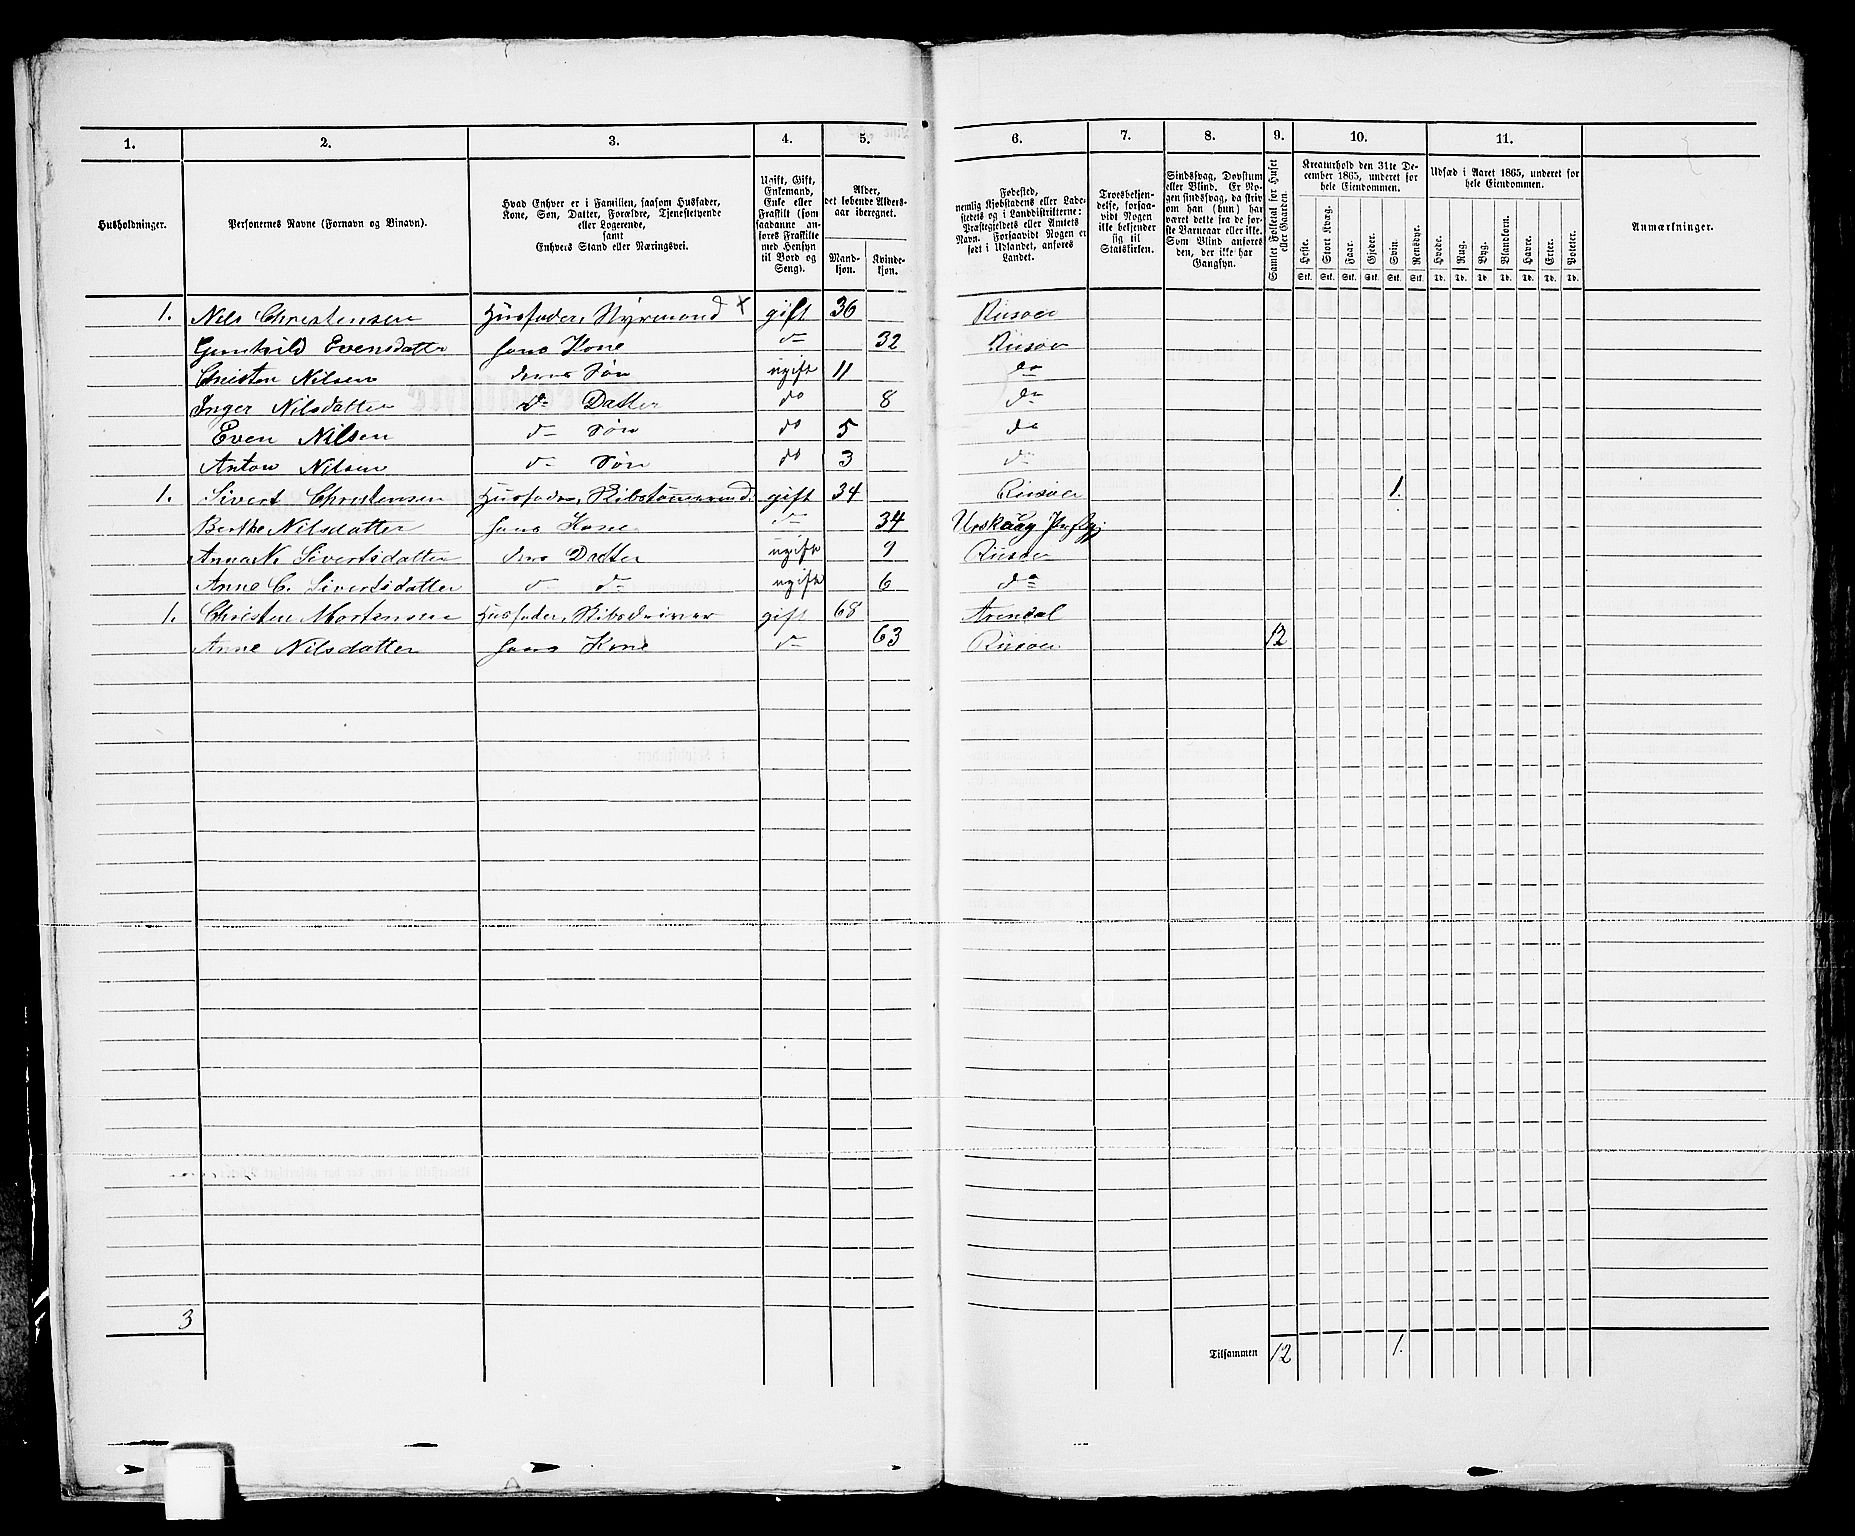 1. 2. 3. 4. 5. 6. 7. 8. 9. 10. 11.
Husholdninger.
Personernes Navne (Fornavn og Binavn).
Hvad Enhver er i Familien, saasom Husfader,
Kone, Søn, Datter, Forældre, Tjenestetyende
eller Logerende,
samt
Enhvers Stand eller Næringsvei.
Ugift, Gift,
Enkemand,
Enke eller
Fraskilt (som
saadanne an-
føres Fraskilte
med Hensyn
til Bord og
Seng).
Alder,
det løbende Alders-
aar iberegnet.
Mand-
kjøn.
Kvinde-
kjøn.
Fødested,
nemlig Kjøbstadens eller Lade-
stedets og i Landdistrikterne:
Præstegjeldets eller Annexets
Navn. Forsaavidt Nogen er
født i Udlandet, anføres
Landet.
Troesbekjen-
delse, forsaa-
vidt Nogen
ikke bekjender
sig til
Statskirken.
Sindssvag, Døvstum
eller Blind. Er No-
gen sindssvag, da skriv
om han (hun) har
været dette fra de før-
ste Barneaar eller ikke.
Som Blind anføres
den, der ikke har
Gangsyn.
Samlet Folketal for Huset
eller Gaarden.
Kreaturhold den 31te De-
cember 1865, underet for
hele Eiendommen.
Heste. Stort Kvæg. Faar. Gjeder. Svin. Rensdyr.
Stk. Stk. Stk. Stk. Stk. Stk.
Udsæd i Aaret 1865, underet for
hele Eiendommen.
Hvede. Rug. Byg. Blandkorn. Havre. Erter. Poteter.
Td. Td. Td. Td. Td. Td. Td.
Anmærkninger.
1. Nils Christensen Husfader, Styrmand × gift 36 Riisøer
Gunhild Evensdatter hans Kone do 32 Riisøer
Christen Nilsen deres Søn ugift 11 do
Inger Nilsdatter do Datter do 8 do
Even Nilsen do Søn do 5 do
Anton Nilsen do Søn do 3 do
1. Sivert Christensen Husfader, Skibstømmermd. gift 34 Riisøer 1.
Berthe Nilsdatter hans Kone do 34 Urskoug Præstgj.
Anna N. Sivertsdatter deres Datter ugift 9 Riisøer
Anne C. Sivertsdatter do do ugift 6 do
1. Christen Mortensen Husfader, gift 68 Arendal
Anne Nilsdatter hans Kone do 63 Riisøer 12
3
Tilsammen 12 1.